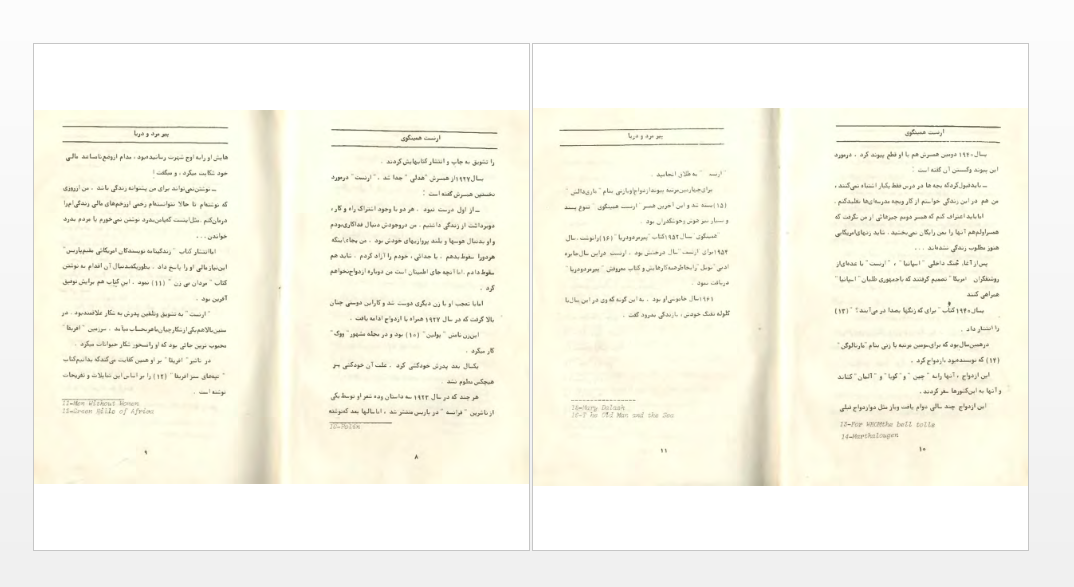 ارنست همینگوی
را تشویق به چاپ و انتشار کتابهایش کردند .
سال ۱۹۲۷ از همسرش "هدلی" جدا شد . "ارنست" درمورد
نخستین همسرش گفته است :
ــ از اول درست نبود . هر دو با وجود اشتراک راه و کار ،
دو برداشت از زندگی داشتیم . من در وجودش دنبال فداکاری بودم
و او بدنبال هوسها و بلند پروازیهای خودش بود . من بجای اینکه
هر دو را سقوط بدهم . با جدائی ، خودم را آزاد کردم . شاید هم
سقوط دادم . اما آنچه جای اطمینان است من دوباره ازدواج نخواهم
کرد .
اما با تعجب او با زن دیگری دوست شد و کار این دوستی چنان
بالا گرفت که در سال ۱۹۲۷ همراه با ازدواج ادامه یافت .
این زن نامش "پولین" (۱۰) بود و در مجله مشهور "ووگ"
کار میکرد .
یکسال بعد پدرش خودکشی کرد . علت آن خودکشی بر
هیچکس معلوم نشد .
هر چند که در سال ۱۹۲۳ سه داستان وده شعر او توسط یکی
از ناشرین "فرانسه" در پاریس منتشر شد ، اما سالها بعد که نوشته
۸
پیر مرد و دریا
هایش او را به اوج شهرت رسانیده بود ، مدام از وضع نابسامان مالی
خود شکایت میکرد ، و میگفت :
ــ نوشتن نمی‌تواند برای من پشتوانه زندگی باشد . من از روزی
که نوشته‌ام تا حالا نتوانسته‌ام زخمی از زخم‌های مالی زندگی‌ام را
درمان کنم . مثل اینست که این بدرد نوشتن نمی‌خورم یا مردم بدرد
خواندن . . .
اما انتشار کتاب "زندگینامه نویسنده‌گان امریکائی مقیم پاریس"
این نیاز مالی او را پاسخ داد . بطوریکه بدنبال آن اقدام به نوشتن
کتاب "مردان بی زن" (۱۱) نمود . این کتاب هم برایش توفیق
آفرین بود .
"ارنست" به تشویق وتلقین پدرش به شکار علاقمند بود . در
محبوب ترین جائی بود که او را بسخور شکار حیوانات میکرد .
در تاثیر "افریقا" بر او همین کفایت می‌کند که بدانیم کتاب
"تپه‌های سبز افریقا" (۱۲) را بر اساس این تمایلات و تفریحات
نوشته است .
11-Men Without Women
12-Green Hills of Africa
۹
ارنست همینگوی
سال ۱۹۴۰ دومین همسرش هم با او قطع پیوند کرد . درمورد
این پیوند وگسستن آن گفته است :
ــ باید قبول کرد که بچه ها در درس فقط یکبار اشتباه نمی‌کنند ،
من هم در این زندگی خواستم از کار وبچه مدرسه‌ای‌ها تقلید کنم .
اما باید اعتراف کنم که همسر دومم چیزهائی از من نگرفت که
همسر اولم هم آنها را بمن رایگان نمی‌بخشید . شاید زنهای امریکائی
هنوز مطلوب زندگی نشده‌اند . . .
پس از آغاز جنگ داخلی "اسپانیا" ، "ارنست" با عده‌ای از
روشنفکران امریکا تصمیم گرفتند که با جمهوری طلبان "اسپانیا"
همراهی کنند
سال ۱۹۴۰ کتاب "برای که زنگها بصدا در می‌آیند؟" (۱۳)
را انتشار داد .
در همین سال بود که برای سومین مرتبه با زنی بنام "مارتاگلوگن"
(۱۴) که نویسنده بود ازدواج کرد .
این ازدواج ، آنها را به "چین" و "کوبا" و "آلمان" کشاند
و آنها به این کشورها سفر کردند .
این ازدواج چند سالی دوام یافت وباز مثل دو ازدواج قبلی
14-Marthalougen
۱۰
پیر مرد و دریا
"ارنست" به طلاق انجامید .
برای چهارمین مرتبه پیوند ازدواج او با زنی بنام "ماری دالش"
(۱۵) بسته شد و این آخرین همسر "ارنست همینگوی" تنوع پسند
و بسیار سر خوش و خوشگذران بود .
"همینگوی" سال ۱۹۵۲ کتاب "پیرمرد و دریا" (۱۶) را نوشت . سال
ادبی "نوبل" را بخاطر همه کارهایش و کتاب معروفش "پیرمرد و دریا"
دریافت نمود .
گلوله تفنگ خودش ، با زندگی بدرود گفت .
15-Mary Dalash
16-T he Old Man and the Sea
۱۱